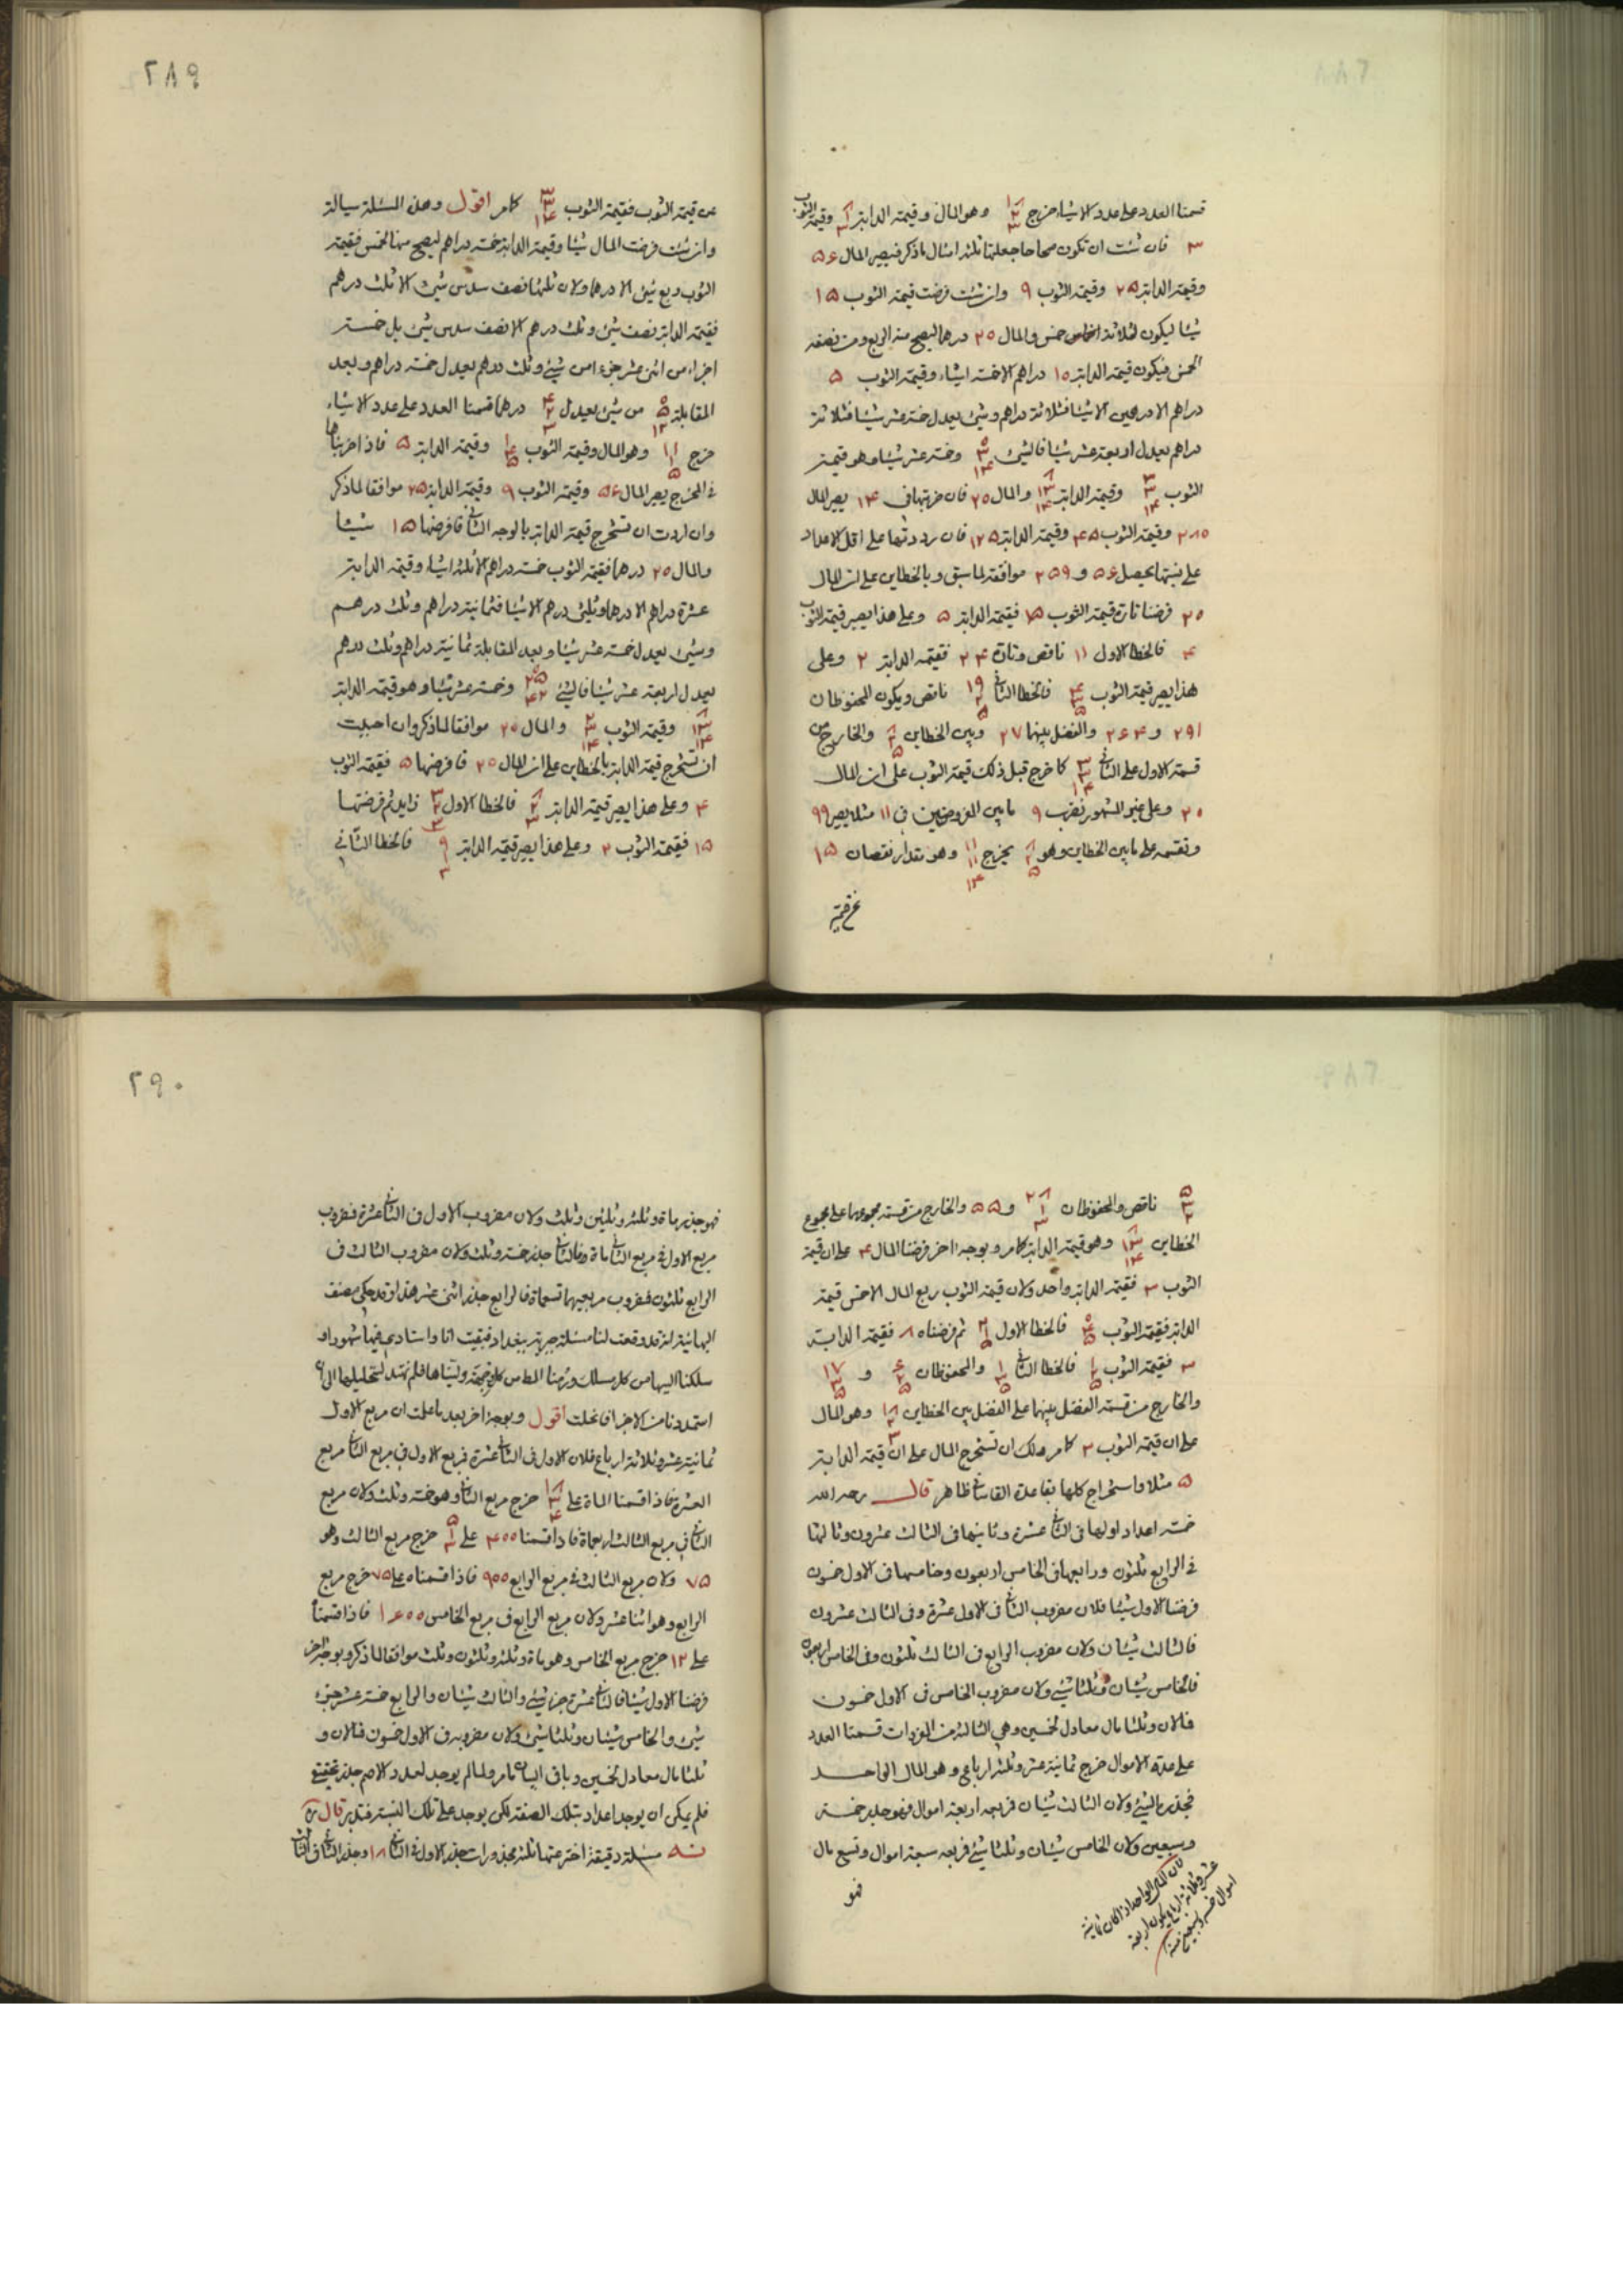 قسمنا العدد على عدد الاشياء خرج وهو المال وقيمة الدابة وقيمة الثوب
۳ فان شئت ان تكون صحاحا جعلتها ثلثة امثال ما ذكر فيصير المال ۵۶
وقيمة الدابة ۲۵ وقيمة الثوب ۹ وان شئت فرضت قيمة الثوب ۱۵
شيئا ليكون لثلاثة اخماس خمس والمال ۲۰ درهما ليصح منه الربع ومن نصفه
الخمس فيكون قيمة الدابة ۱۵ دراهم الا خمسة اشياء وقيمة الثوب ۵
دراهم الا درهمين الا شيئا فثلاثة دراهم وشئ يعدل خمسة عشر شيئا فثلاثة
دراهم يعدل اربعة عشر شيئا فالشئ وخمسة عشر شيئا وهو قيمة
الثوب وقيمة الدابة والمال ۲۰ فان ضربتها في ۱۴ يصير المال
۲۸۰ وقيمة الثوب ۴۵ وقيمة الدابة ۱۲۵ فان رددتها على اقل الاعداد
على نسبتها يحصل ۵۶ و ۹ ۲۵ موافقة لما سبق وبالخطاين على ان المال
۲۰ فرضنا تارة قيمة الثوب ۱۵ فقيمة الدابة ۵ وعلى هذا يصير قيمة الثوب
۴ فالخطا الاول ۱۱ ناقص وتارة ۲۴ فقيمة الدابة ۲ وعلى
هذا يصير قيمة الثوب فالخطا الثاني ناقص ويكون المحفوظان
۲۹۱ و ۲۶۴ والفضل بينهما ۲۷ وبين الخطاين والخارج من
قسمة الاول على الثاني كما خرج قبل ذلك قيمة الثوب على ان المال
۲۰ وعلى غير المشهور نضرب ۹ ما بين المفروضين في ۱۱ مثلا يصير ۹۹
ونقسمه على ما بين الخطاين وهو يخرج وهو مقدار نقصان ۱۵
عن قيمة
۲۸۹
عن قيمة الثوب فقيمة الثوب كما مر اقول وهذه المسئلة سيالة
وان شئت فرضت المال شيئا وقيمة الدابة خمسة دراهم ليصح منها الخمس فقيمة
الثوب ربع شئ الا درهما ولان ثلثها نصف سدس شئ الا ثلث درهم
فقيمة الدابة نصف شئ وثلث درهم الا نصف سدس شئ بل خمسة
اجزاء من اثنى عشر جزءا من شئ وثلث درهم يعدل خمسة دراهم وبعد
المقابلة من شئ يعدل درهما قسمنا العدد على عدد الاشياء
خرج وهو المال وقيمة الثوب وقيمة الدابة ۵ فاذا ضربناها
في المخرج يصير المال ۵۶ وقيمة الثوب ۹ وقيمة الدابة ۲۵ موافقا لما ذكر
وان اردت ان تستخرج قيمة الدابة بالوجه الثاني فافرضها ۱۵ شيئا
والمال ۲۰ درهما فقيمة الثوب خمسة دراهم الا ثلثة اشياء وقيمة الدابة
عشرة دراهم الا درهما وثلثى درهم الا شيئا فثمانية دراهم وثلث درهم
وشئ يعدل خمسة عشر شيئا وبعد المقابلة ثمانية دراهم وثلث درهم
يعدل اربعة عشر شيئا فالشئ وخمسة عشر شيئا وهو قيمة الدابة
وقيمة الثوب والمال ۲۰ موافقا لما ذكر وان احببت
ان تستخرج قيمة الدابة بالخطاين على ان المال ۲۰ فافرضها ۵ فقيمة الثوب
۴ وعلى هذا يصير قيمة الدابة فالخطا الاول زايد ثم فرضتها
۱۵ فقيمة الثوب ۲ وعلى هذا يصير قيمة الدابة فالخطا الثاني
ناقص والمحفوظان و ۵۵ والخارج من قسمة مجموعهما على مجموع
الخطاين وهو قيمة الدابة كما مر وبوجه اخر فرضنا المال ۴ على ان قيمة
الثوب ۳ فقيمة الدابة واحد ولان قيمة الثوب ربع المال الا خمس قيمة
الدابة فقيمة الثوب فالخطا الاول ثم فرضناه ۸ فقيمة الدابة
۳ فقيمة الثوب فالخطا الثاني والمحفوظان و
والخارج من قسمة الفضل بينهما على الفضل بين الخطاين وهو المال
على ان قيمة الثوب ۳ كما مر ولك ان تستخرج المال على ان قيمة الدابة
۵ مثلا واستخراج كلها بقاعدة القاساني ظاهر قال رحمه الله
خمسة اعداد اولها في الثاني عشرة وثانيها في الثالث عشرون وثالثها
في الرابع ثلثون ورابعها في الخامس اربعون وخامسها في الاول خمسون
فرضنا الاول شيئا فلان مضروب الثاني في الاول عشرة وفي الثالث عشرون
فالثالث شيئان ولان مضروب الرابع في الثالث ثلثون وفي الخامس اربعون
فالخامس شيئان وثلثا شئ ولان مضروب الخامس في الاول خمسون
فمالان وثلثا مال معادل لخمسين وهي الثالثة من المفردات قسمنا العدد
على عدة الاموال خرج ثمانية عشر وثلثة ارباع وهو المال الواحد
فجذره الشئ ولان الثالث شيئان فمربعه اربعة اموال فهو جذر خمسة
وسبعين ولان الخامس شيئان وثلثا شئ فمربعه سبعة اموال وتسع مال
فهو
لان المال الواحد اذا كان ثمانية
عشر وثلاثة ارباع يكون اربعة
اموال خمسة وسبعين
۲۹۰
فهو جذر مائة وثلثة وثلثين وثلث ولان مضروب الاول في الثاني عشرة فمضروب
مربع الاول في مربع الثاني مائة فالثاني جذر خمسة وثلث ولان مضروب الثالث في
الرابع ثلثون فمضروب مربعيهما تسعمائة فالرابع جذر اثنى عشر هذا وقد حكى مصنف
البهائية انه قد وقعت لنا مسئلة جبرية ببغداد فبقيت انا واستادي فيها شهورا و
سلكنا اليها من كل مسلك فلم نهتد لتحليلها الى ان
استمددنا من الاجزا فانحلت اقول وبوجه اخر بعد ما علمت ان مربع الاول
ثمانية عشر وثلاثة ارباع فلان الاول في الثاني عشرة فمربع الاول في مربع الثاني مربع
العشرة فاذا قسمنا المائة على خرج مربع الثاني وهو خمسة وثلث ولان مربع
الثاني في مربع الثالث اربعمائة فاذا قسمنا ۴۰۰ على خرج مربع الثالث وهو
۷۵ ولان مربع الثالث في مربع الرابع ۹۰۰ فاذا قسمناه على ۷۵ خرج مربع
الرابع وهو اثنا عشر ولان مربع الرابع في مربع الخامس ۱۶۰۰ فاذا قسمناه
على ۱۲ خرج مربع الخامس وهو مائة وثلثة وثلثون وثلث موافقا لما ذكر وبوجه اخر
فرضنا الاول شيئا فالثاني عشرة جزء شئ والثالث شيئان والرابع خمسة عشر جزء
شئ والخامس شيئان وثلثا شئ ولان مضروبه في الاول خمسون فمالان و
ثلثا مال معادل لخمسين وباقى البيان ما مر ولما لم يوجد لعدد الاصم جذر تحقيقى
فلم يمكن ان يوجد اعداد بتلك الصفة لكن يوجد على تلك النسبة فتدبر قال ره
مسئلة دقيقة اخترعتها ثلثة مجذورات جذر الاول في الثاني ۱۸ وجذر الثاني في الثالث